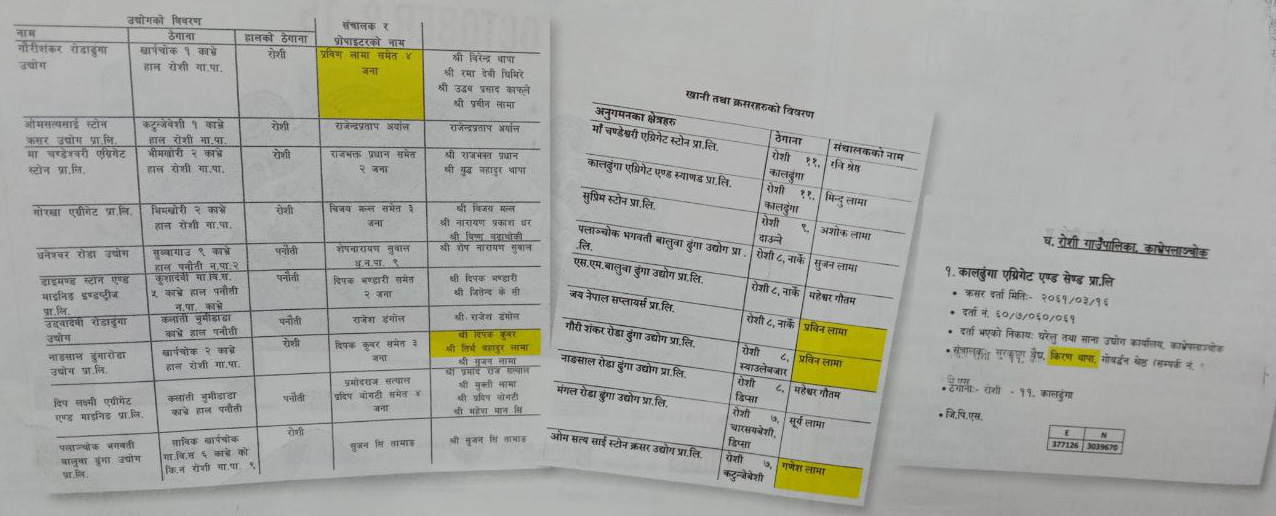 उद्योगको विवरण
नाम ठेगाना हालको ठेगाना संचालक र प्रोपाइटरको नाम
गौरीशंकर रोडाढुंगा उद्योग
खार्पचोक १ काभ्रे हाल रोशी गा.पा.
रोशी
प्रविण लामा समेत ४ जना
श्री विरेन्द्र थापा
श्री रमा देवी घिमिरे
श्री उद्धव प्रसाद काफ्ले
श्री प्रवीन लामा
ओमसत्यसाई स्टोन क्रसर उद्योग प्रा.लि.
कटुन्जेबेशी १ काभ्रे हाल रोशी गा.पा.
रोशी
राजेन्द्रप्रताप अर्याल
राजेन्द्रप्रताप अर्याल
मा चण्डेश्वरी एग्रिगेट स्टोन प्रा.लि.
भीमखोरी २ काभ्रे हाल रोशी गा.पा.
रोशी
राजभक्त प्रधान समेत २ जना
श्री राजभक्त प्रधान
श्री युद्ध बहादुर थापा
गोरखा एग्रीगेट प्रा.लि.
भिमखोरी २ काभ्रे हाल रोशी गा.पा.
रोशी
विजय मल्ल समेत ३ जना
श्री विजय मल्ल
श्री नारायण प्रकाश धर
श्री विष्णु
धनेश्वर रोडा उद्योग
सुब्बागाउ ९ काभ्रे हाल पनौती न.पा.२
पनौती
शेषनारायण सुवाल ध.न.पा. ९
श्री शेष नारायण सुवाल
डाइमण्ड स्टोन एण्ड माइनिङ इण्डष्ट्रीज प्रा.लि.
कुशादेवी गा.वि.स. ५ काभ्रे हाल पनौती न.पा. काभ्रे
पनौती
दिपक भण्डारी समेत २ जना
श्री दिपक भण्डारी
श्री जितेन्द्र के सी
उदयादेवी रोडाढुंगा उद्योग
कलाती भुमीडाडा काभ्रे हाल पनौती
पनौती
राजेश डंगोल
श्री राजेश डंगोल
नाडसाल ढुंगारोडा उद्योग प्रा.लि.
खार्पचोक २ काभ्रे हाल रोशी गा.पा.
रोशी
दिपक कुवर समेत ३ जना
श्री दिपक कुवर
श्री तिर्थ बहादुर लामा
श्री सुजन लामा
दिप लक्ष्मी एग्रीगेट एण्ड माइनिड प्रा.लि.
कलाती भुमीडाडा काभ्रे हाल पनौती
पनौती
प्रमोदराज सत्याल प्रदिप योगटी समेत ४ जना
श्री प्रमोद राज सत्याल
श्री मुक्ती लामा
श्री प्रदिप योगटी
श्री महेश मान सि
पलाञ्चोक भगवती बालुवा ढुंगा उद्योग प्रा.लि.
साविक खार्पचोक गा.वि.स ६ काभ्रे को कि.न रोशी गा.पा. ९
रोशी
सुजन सि तामाङ
श्री सुजन सि तामाङ
खानी तथा क्रसरहरुको विवरण
अनुगमनका क्षेत्रहरु ठेगाना संचालकको नाम
माँ चण्डेश्वरी एग्रिगेट स्टोन प्रा.लि. रोशी ११, कालढुंगा रवि श्रेष्ठ
कालढुंगा एग्रिगेट एण्ड स्याण्ड प्रा.लि. रोशी ११, कालढुंगा मिन्दु लामा
सुप्रिम स्टोन प्रा.लि. रोशी ९, दाउन्ने अशोक लामा
पलाञ्चोक भगवती बालुवा ढुंगा उद्योग प्रा.लि. रोशी ८, नार्के सुजन लामा
एस.एम.बालुवा ढुंगा उद्योग प्रा.लि. रोशी ८, नार्के महेश्वर गौतम
जय नेपाल सप्लायर्स प्रा.लि. रोशी ८, नार्के प्रविन लामा
गौरी शंकर रोडा ढुंगा उद्योग प्रा.लि. रोशी ८, स्याउलेबजार प्रविन लामा
नाङसाल रोडा ढुंगा उद्योग प्रा.लि. रोशी ८, डिप्सा महेश्वर गौतम
मंगल रोडा ढुंगा उद्योग प्रा.लि. रोशी ७, चारसयबेशी, डिप्सा सूर्य लामा
ओम सत्य साई स्टोन क्रसर उद्योग प्रा.लि. रोशी ७, कटुन्जेबेशी गणेश लामा
घ. रोशी गाउँपालिका, काभ्रेपलाञ्चोक
१. कालढुंगा एग्रिगेट एण्ड सेण्ड प्रा.लि
• क्रसर दर्ता मितिः- २०६१/०३/१६
• दर्ता नं. ६०/७/०६०/०६१
• दर्ता भएको निकायः घरेलु तथा साना उद्योग कार्यालय, काभ्रेपलाञ्चोक
• संचालकः वैद्य, किरण थापा, गोवर्द्धन श्रेष्ठ (सम्पर्क नं.
• ठेगानाः- रोशी - ११. कालढुंगा
• जि.पि.एस.
E N
377126 3039670